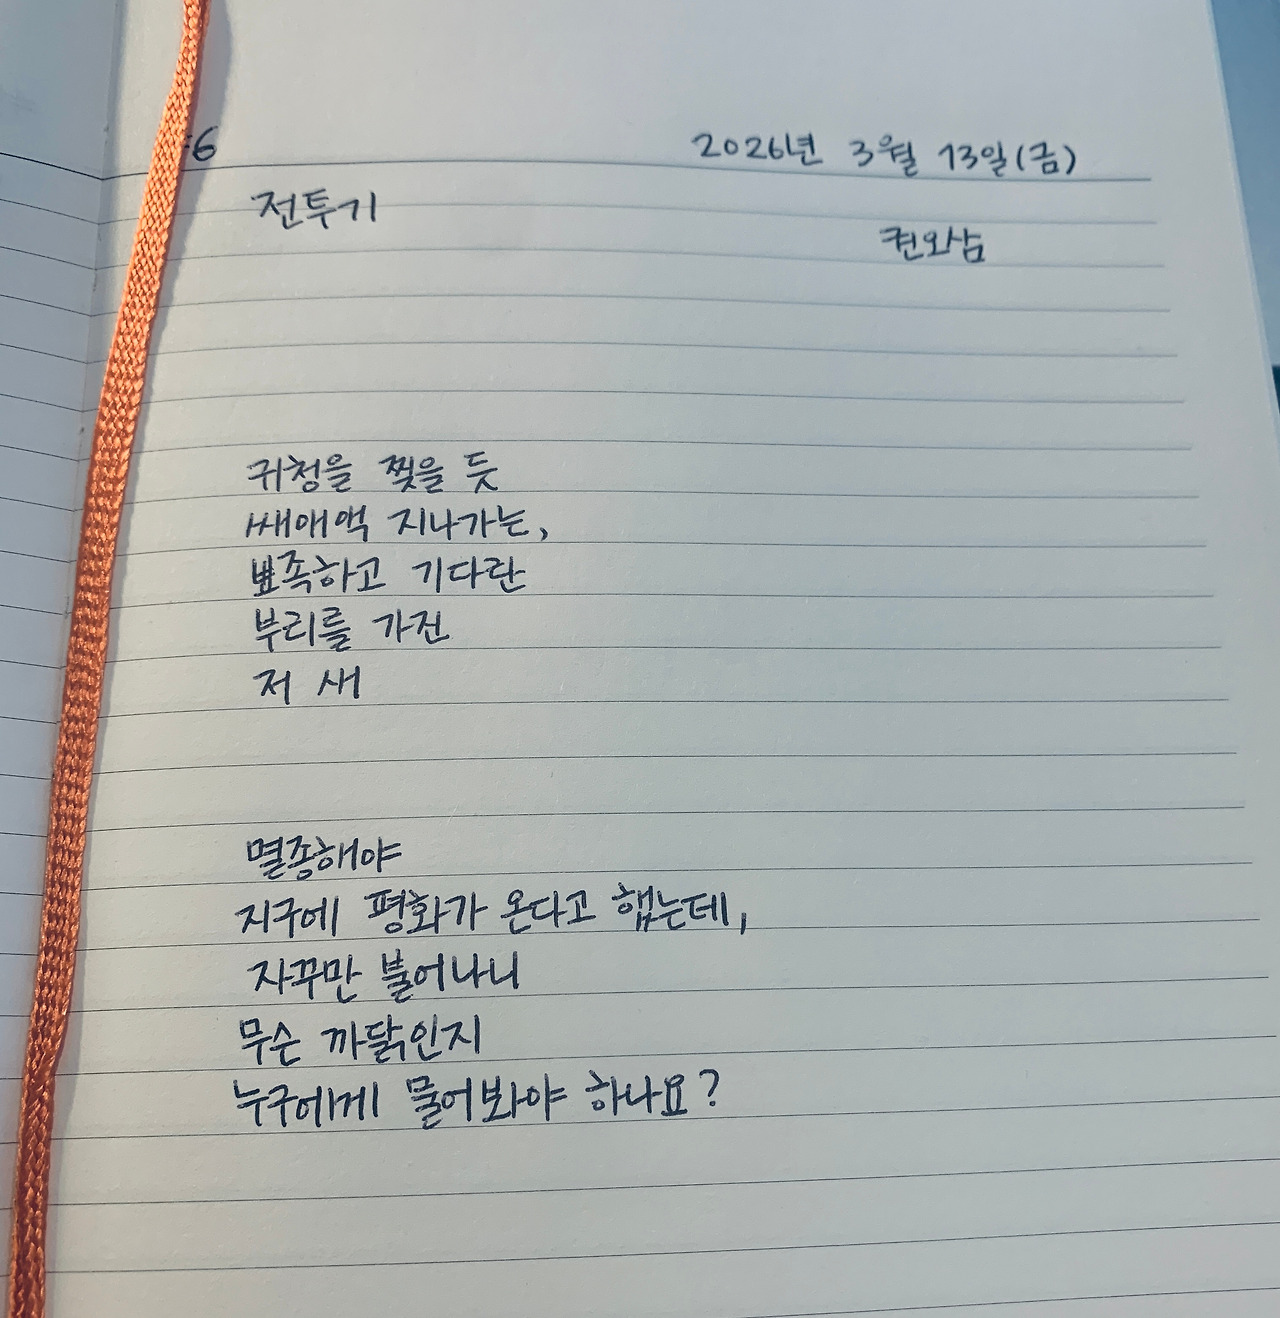 :6
2026년 3월 13일(금)
전투기
퀸와삼
귀청을 찢을 듯
쌔애액 지나가는,
뾰족하고 기다란
부리를 가진
저 새
멸종해야
지구에 평화가 온다고 했는데,
자꾸만 불어나니
무슨 까닭인지
누구에게 물어봐야 하나요?